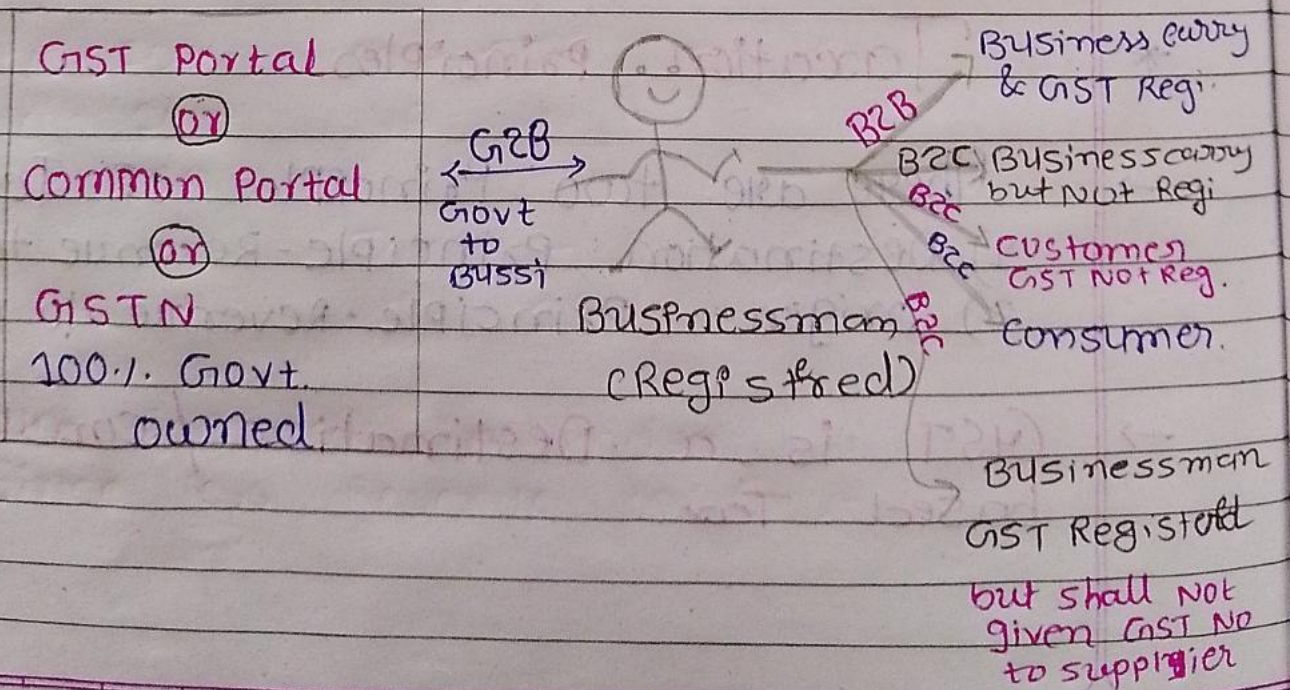 GST Portal
or
Common Portal
or
GSTN
100%. Govt.
owned.
G2B
Govt
to
Bussi
Businessman
(Registered)
B2B
Business curry
& GST Regi.
B2C, Business carry
but Not Regi
B2C
Customer
GST Not Reg.
B2C
Consumer.
B2C
Businessman
GST Registerd
but shall Not
given GST No
to supplier